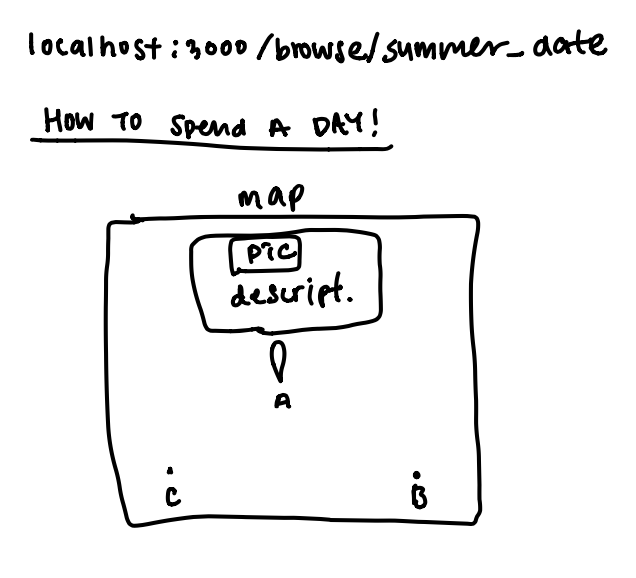 localhost:3000/browse/summer_date
HOW TO Spend A DAY!
map
pic
descript.
A
C
B